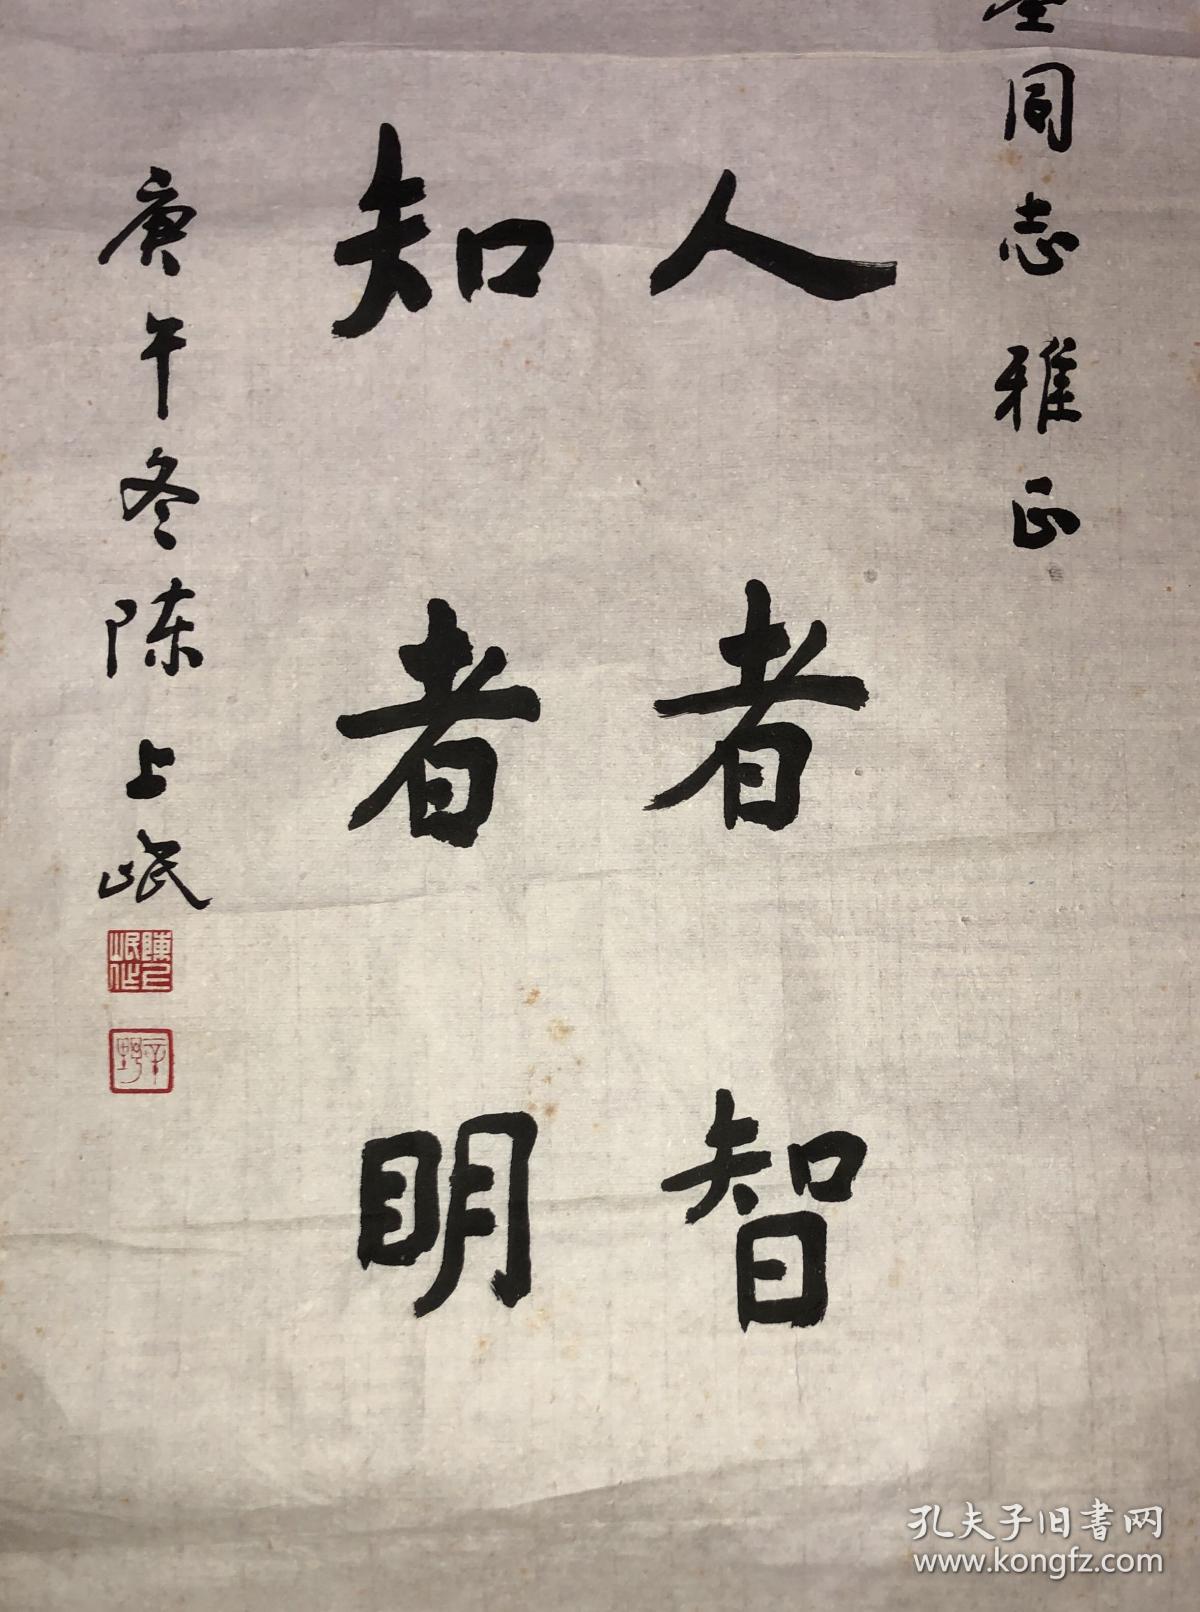 同志雅正
人者智
知者明
庚午冬陈上岷
孔夫子旧書网
www.kongfz.com